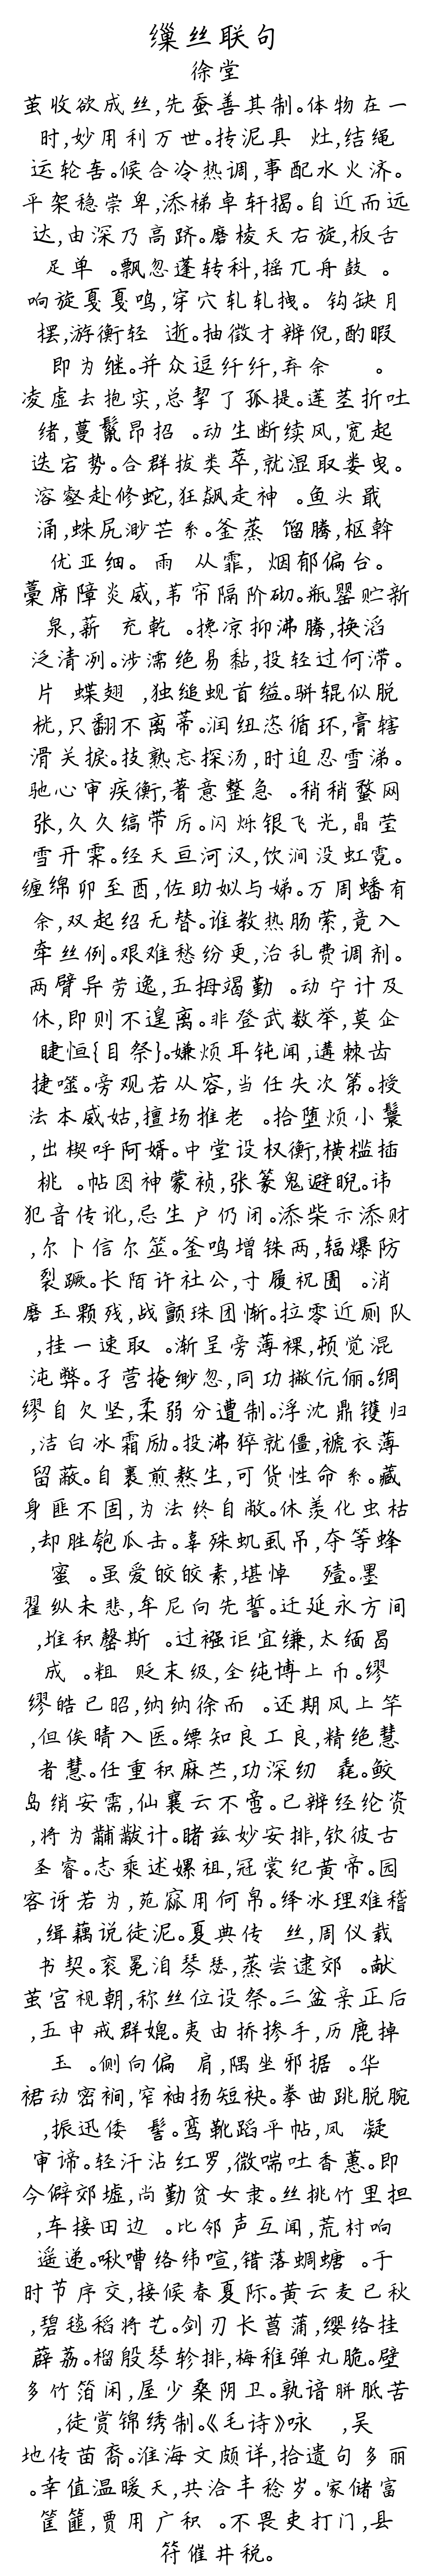 缫丝联句
徐堂
茧收欲成丝,先蚕善其制。体物在一
时,妙用利万世。抟泥具 灶,结绳
运轮軎。候合冷热调,事配水火济。
平架稳崇卑,添梯卓轩揭。自近而远
达,由深乃高跻。磨棱天右旋,板舌
足单 。飘忽蓬转科,摇兀舟鼓 。
响旋戛戛鸣,穿穴轧轧拽。 钩缺月
摆,游衡轻 逝。抽徵才辨倪,酌暇
即为继。并众逗纤纤,弃余 。
凌虚去抱实,总挈了孤提。莲茎折吐
绪,蔓鬣昂招 。动生断续风,宽起
迭宕势。合群拔类萃,就湿取娄曳。
溶壑赴修蛇,狂飙走神 。鱼头戢
涌,蛛尻渺芒系。釜蒸 馏腾,枢斡
优亚细。 雨 从霏, 烟郁偏台。
藁席障炎威,苇帘隔阶砌。瓶罂贮新
泉,薪 充乾 。搀凉抑沸腾,换滔
泛清冽。涉濡绝易黏,投轻过何滞。
片 蝶翅 ,独缒蚬首缢。骈辊似脱
桄,只翻不离蒂。润纽恣循环,膏辖
滑关捩。技熟忘探汤,时迫忍雪涕。
驰心审疾衡,著意整急 。稍稍蝥网
张,久久缟带厉。闪烁银飞光,晶莹
雪开霂。经天亘河汉,饮涧没虹霓。
缠绵卯至酉,佐助姒与娣。万周蟠有
余,双起绍无替。谁教热肠萦,竟入
牵丝例。艰难愁纷更,治乱费调剂。
两臂异劳逸,五拇竭勤 。动宁计及
休,即则不遑离。非登武数举,莫企
睫恒{目祭}。嫌烦耳钝闻,遘棘齿
捷噬。旁观若从容,当任失次第。授
法本威姑,擅场推老 。拾堕烦小鬟
,出楔呼阿婿。中堂设权衡,横槛插
桃 。帖图神蒙祯,张篆鬼避睨。讳
犯音传讹,忌生户仍闭。添柴示添财
,尔卜信尔筮。釜鸣增铢两,辐爆防
裂蹶。长陌许社公,寸履祝圉 。消
磨玉颗残,战颤珠团惭。拉零近厕队
,挂一速取 。渐呈旁薄裸,顿觉混
沌弊。孑营掩缈忽,同功撇伉俪。绸
缪自欠坚,柔弱分遭制。浮沈鼎镬归
,洁白冰霜励。投沸猝就僵,褫衣薄
留蔽。自裹煎熬生,可货性命系。藏
身匪不固,为法终自敝。休羡化虫枯
,却胜匏瓜击。辜殊虮虱吊,夺等蜂
蜜 。虽爱皎皎素,堪悼 殪。墨
翟纵未悲,牟尼向先誓。迁延永方间
,堆积罄斯 。过襁讵宜缣,太缅曷
成 。粗 贬末级,全纯博上币。缪
缪皓已昭,纳纳徐而 。还期风上竿
,但俟晴入医。缥知良工良,精绝慧
者慧。任重积麻苎,功深纫 毳。鲛
岛绡安需,仙襄云不啻。已辨经纶资
,将为黼黻计。睹兹妙安排,钦彼古
圣睿。志乘述嫘祖,冠裳纪黄帝。园
客讶若为,苑窳用何帛。绎冰理难稽
,缉藕说徒泥。夏典传 丝,周仪载
书契。衮冕洎琴瑟,蒸尝逮郊 。献
茧宫视朝,称丝位设祭。三盆亲正后
,五申戒群媲。夷由挢掺手,历鹿掉
玉 。侧向偏 肩,隅坐邪据 。华
裙动密裥,窄袖扬短袂。拳曲跳脱腕
,振迅倭 髻。鸾靴蹈平帖,凤 凝
审谛。轻汗沾红罗,微喘吐香蕙。即
今僻郊墟,尚勤贫女隶。丝挑竹里担
,车接田边 。比邻声互闻,荒村响
遥递。啾嘈络纬喧,错落蜩螗 。于
时节序交,接候春夏际。黄云麦已秋
,碧毯稻将艺。剑刃长菖蒲,缨络挂
薜荔。榴殷琴轸排,梅稚弹丸脆。壁
多竹箔闲,屋少桑阴卫。孰谙胼胝苦
,徒赏锦绣制。《毛诗》咏 ,吴
地传苗裔。淮海文颇详,拾遗句多丽
。幸值温暖天,共洽丰稔岁。家储富
筐篚,贾用广积 。不畏吏打门,县
符催井税。